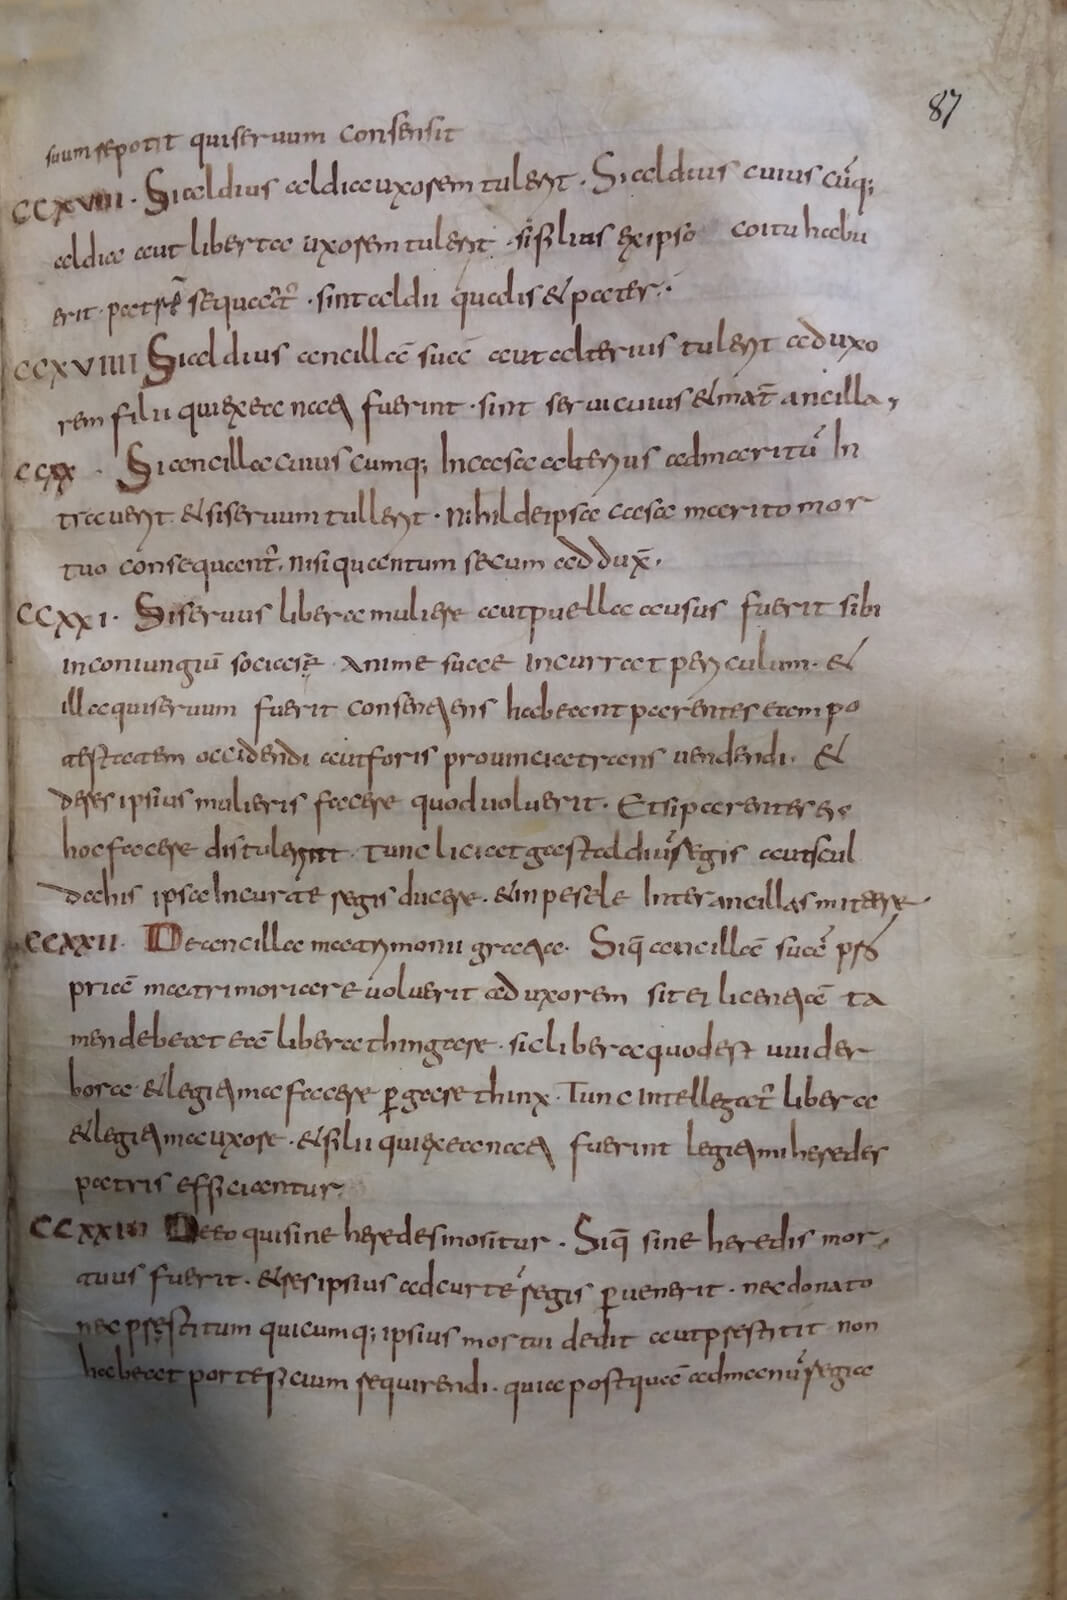 87
suum repotit qui seruum consensit
CCXVIII. Si aldius aldia uxorem tulerit. Si aldius cuiuscūq;
aldia aut liberta uxorem tulerit. si filius ex ipso coitu habu
erit. patrē sequat̄. sint aldii qualis & pater.
CCXVIIII Si aldius ancillā suā aut alterius tulerit ad uxo
rem filii qui ex ea nati fuerint. sint serui cuius & mat̄ ancilla,
CCXX. Si ancilla cuiuscumq; In casa alterius ad maritū In
trauerit. & si seruum tullerit. Nihil de ipsa casa marito mor
tuo consequent̄. nisi quantum secum addux̄.
CCXXI. Si seruus libera muliere aut puella ausus fuerit sibi
in coniungiū sociarē. Anime suae incurrat periculum. &
illa qui seruum fuerit consentiens habeant parentes eam po
testatem occidendi aut foris prouincia trans uendendi. &
de res ipsius mulieris facere quod uoluerit. Et si parentes ei
hoc facere distulerint. Tunc liciat gastaldiū regis aut scul
dahis ipsa In curte regis ducere. & in pesele Inter ancillas mitere
CCXXII. De ancilla matrimonii gratia. Siq̄ ancillā suā pro
priā matrimoniare uoluerit ad uxorem sit ei licentiā ta
men debeat eā libera thingare. sic libera quod est uuider
bora. & legitima facere p̱ garethinx. Tunc intellegat̄ libera
& legitima uxore. & filii qui ex ea nati fuerint legitimi heredes
patris efficiantur.
CCXXIII De eo qui sine heredes moritur. Siq̄ sine heredis mor
tuus fuerit. & res ipsius ad curtē regis p̱uenerit. nec donato
nec prestitum quicumq; ipsius mortui dedit aut prestitit non
habeat portesicium requirendi. quia postquā ad manū regia